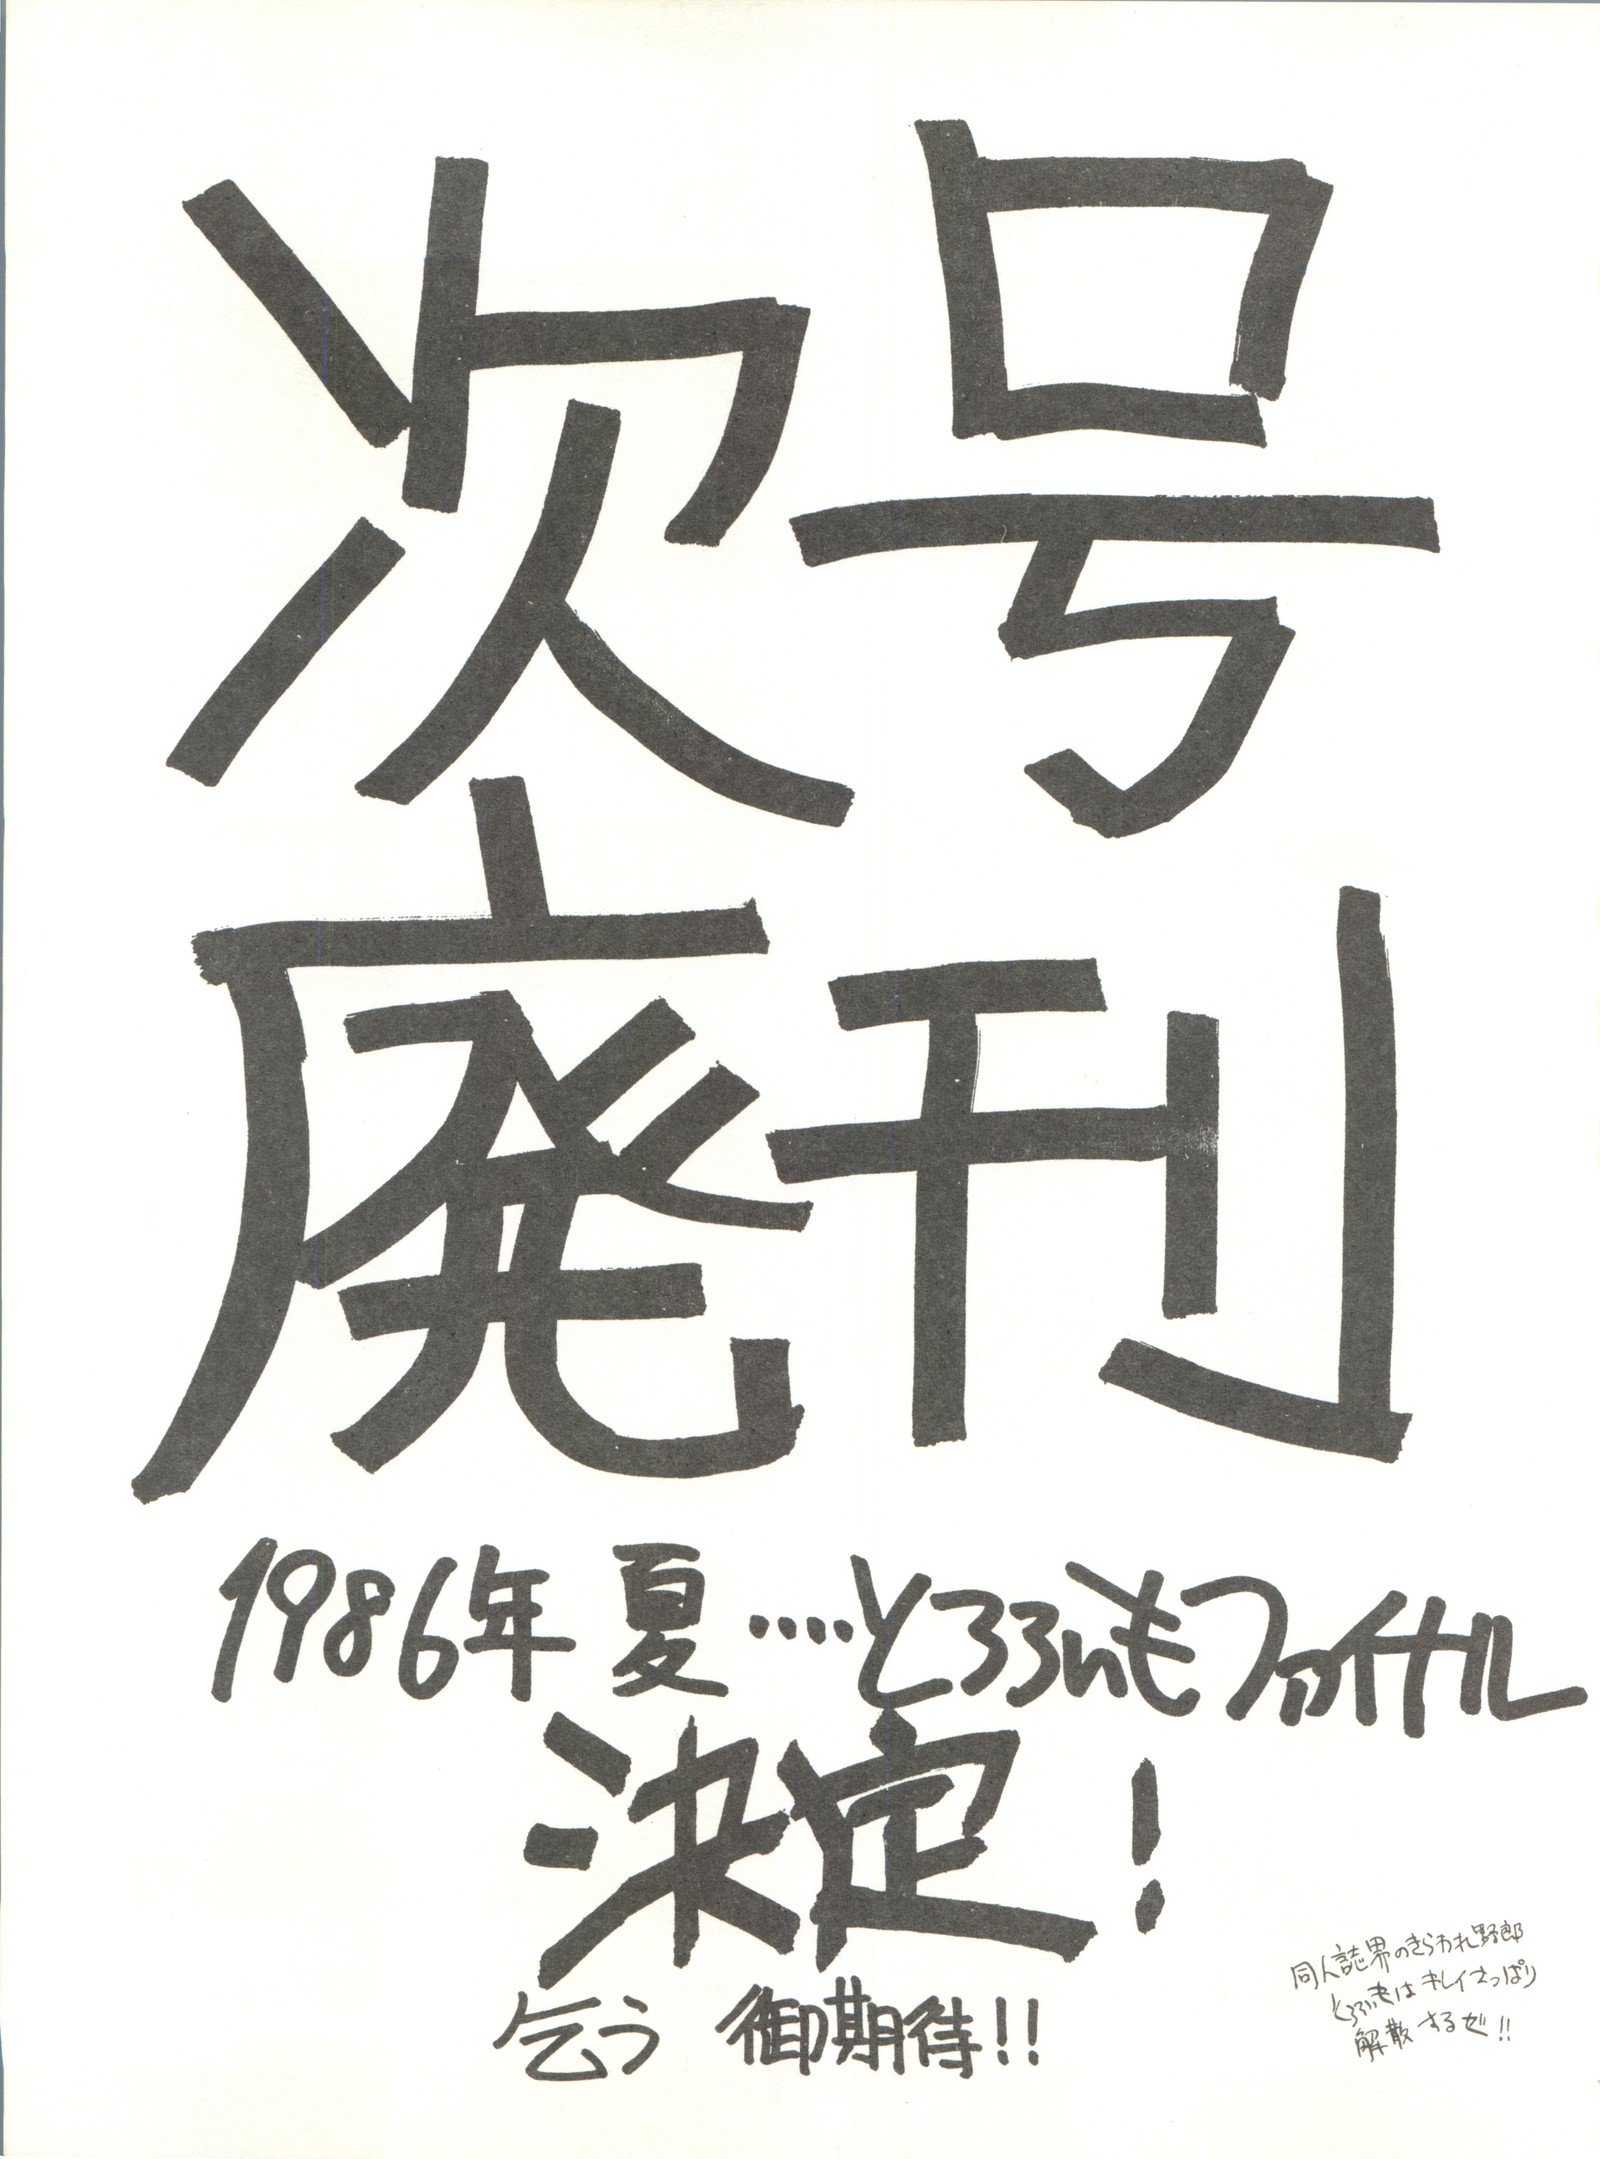 次号
廃刊
1986年 夏・・・・とろろいもファイナル
決定!
乞う 御期待!!
同人誌界のきらわれ野郎
とろろいもはキレイさっぱり
解散するぜ!!